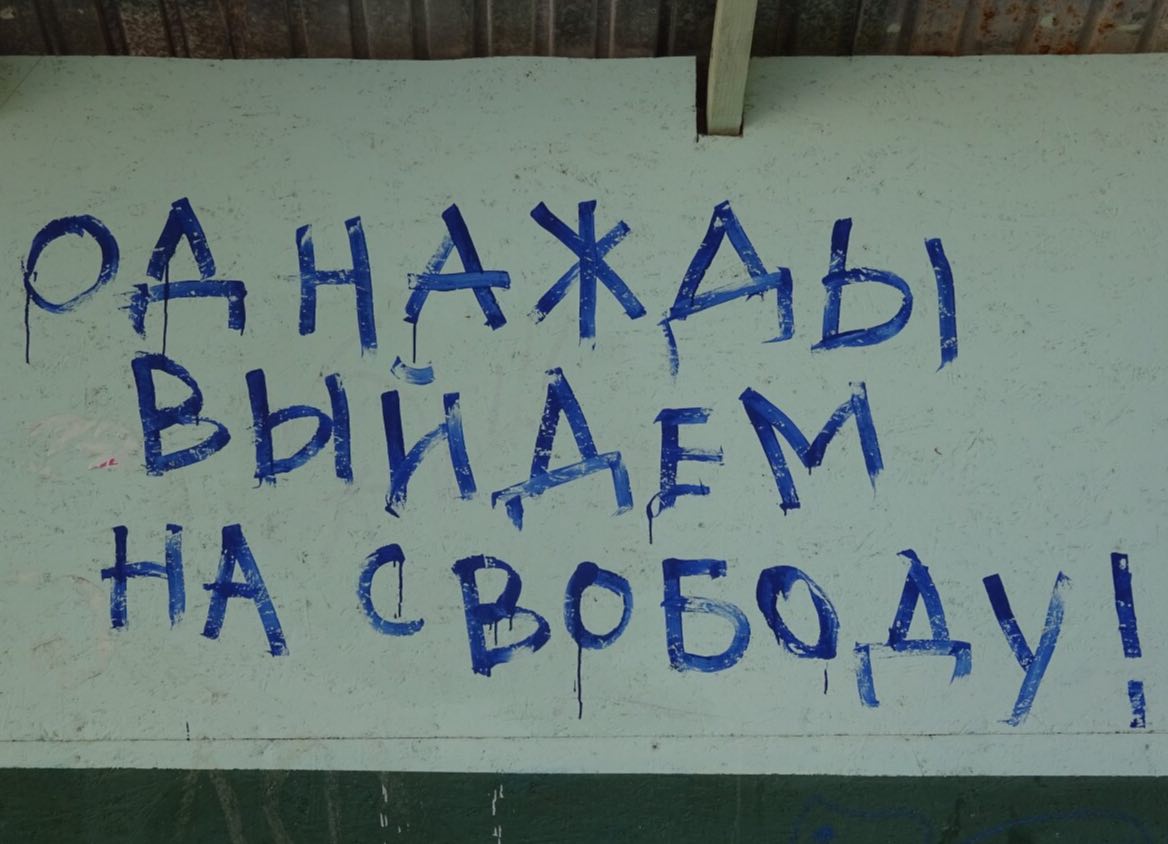 ОДНАЖДЫ
ВЫЙДЕМ
НА СВОБОДУ!